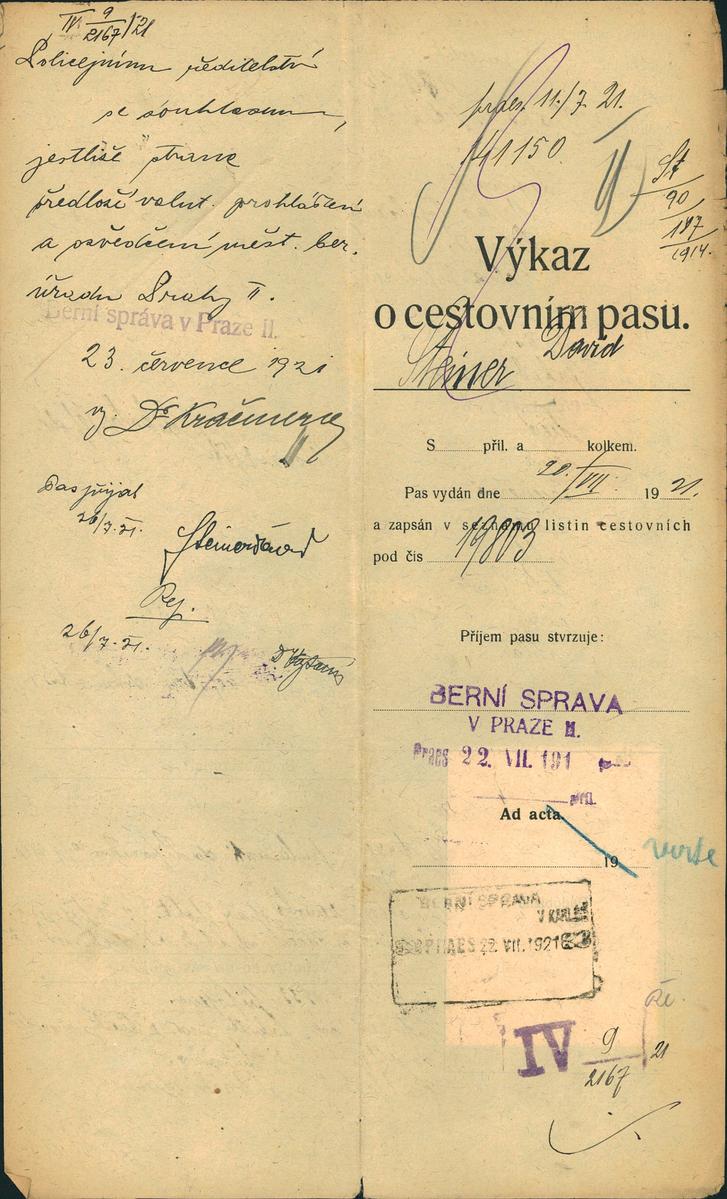 IV. 9/2167/21
Policejnímu ředitelství
se souhlasem,
jestliže strana
předloží valut. prohlášení
a osvědčení měst. ber.
úřadu Prahy II.
Berní správa v Praze II.
23. července 1921
Dr Kračmer
Pas přijal
26/7.21.
Steiner David
Rej.
26/7.21.
praes. 11./7. 21.
41150
St
90
187
1914.
Výkaz
o cestovním pasu.
Steiner David
S příl. a kolkem.
Pas vydán dne 20./VII. 1921.
a zapsán v seznamu listin cestovních
pod čís 19803
Příjem pasu stvrzuje:
BERNÍ SPRAVA
V PRAZE II.
Praes 22. VII. 191
příl.
Ad acta.
19
verte
BERNÍ SPRAVA
V KARLÍNĚ
PRAES 22 VII. 1921
IV 9/2167 21